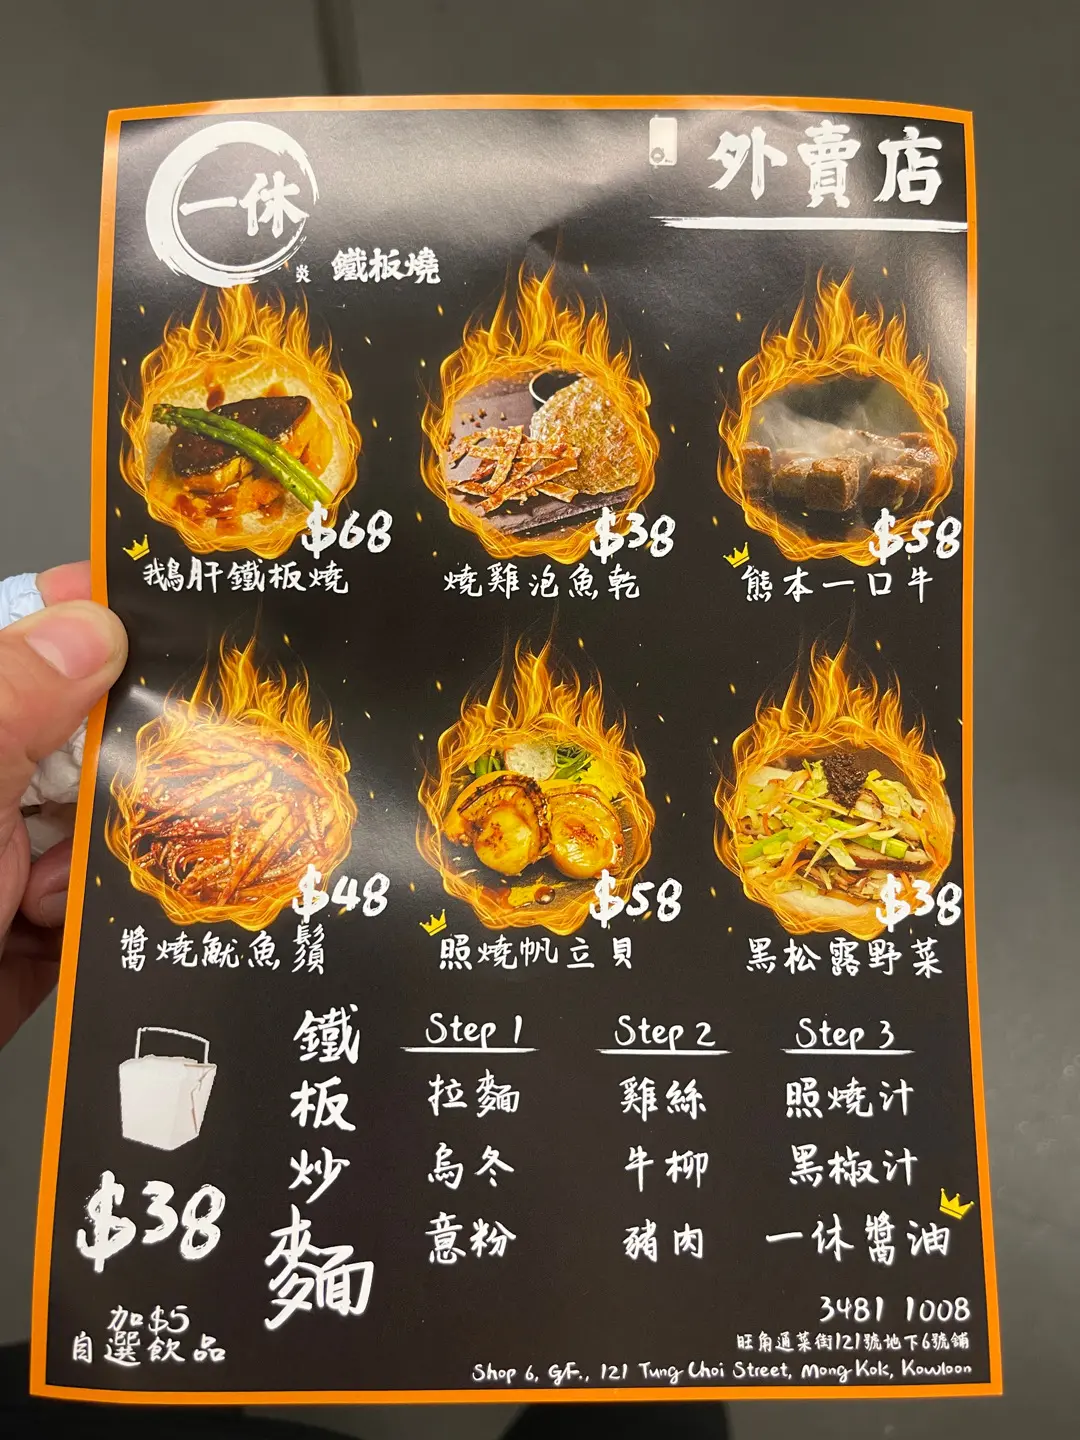 一休
炎 鐵板燒
外賣店
$68
鵝肝鐵板燒
$38
燒雞泡魚乾
$58
熊本一口牛
$48
醬燒魷魚鬚
$58
照燒帆立貝
$38
黑松露野菜
$38
加$5
自選飲品
鐵板炒麵
Step 1
拉麵
烏冬
意粉
Step 2
雞絲
牛柳
豬肉
Step 3
照燒汁
黑椒汁
一休醬油
3481 1008
旺角通菜街121號地下6號舖
Shop 6, G/F., 121 Tung Choi Street, Mong Kok, Kowloon